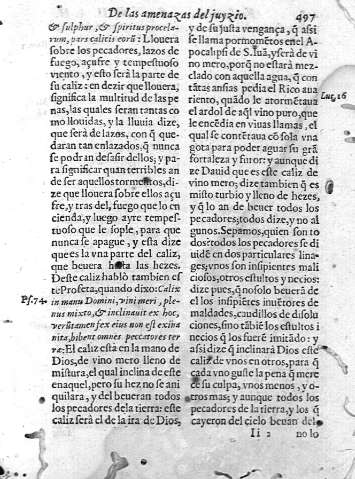 De las amenazas del juyzio. 497
& sulphur, & spiritus procela-
rum, pars calitis eorũ: Llouera
sobre los pecadores, lazos de
fuego, açufre y tempestuoso
viento, y esto será la parte de
su caliz: en dezir que llouera,
significa la multitud de las pe-
nas, las quales seran tantas co
mo llouidas, y la lluuia dize,
que será de lazos, con q̃ que-
daran tan enlazados, q̃ nunca
se podran desasir dellos; y pa-
ra significar quan terribles an
de ser aquellos tormentos, di-
ze que llouera sobre ellos açu
fre, y tras del, fuego que lo en
cienda, y luego ayre tempes-
tuoso que le sople, para que
nunca se apague, y esta dize
que es la vna parte del caliz,
que beuera hasta las hezes.
Deste caliz habló tambien es
te Profeta, quando dixo: Calix
Ps. 74. in manu Domini, vini meri, ple-
nus mixto, & inclinauit ex hoc,
verũtamen fex eius non est exina
nita, bibent omnes peccatores ter
ræ: El caliz está en la mano de
Dios, de vino mero lleno de
mistura, el qual inclina de este
en aquel, pero su hez no se ani
quilara, y del beueran todos
los pecadores dela tierra: este
caliz será el de la ira de Dios,
y de su justa vengança, q̃ assi
se llama por mõtes en el A
pocalipsi de S. Iuã, y será de vi
no mero, porq̃ no estará mez
clado con aquella agua, q̃ con
tãtas ansias pedia el Rico aua
riento, quãdo le atormẽtaua Luc. 16
el ardol de aq̃l vino puro, que
le encẽdia en viuas llamas, el
qual se contẽtaua cõ sola vna
gota para poder aguar su grã
fortaleza y furor: y aunque di
ze Dauid que es este caliz de
vino mero; dize tambien q̃ es
misto turbio y lleno de hezes,
y q̃ lo an de beuer todos los
pecadores; todos dize, y no al
gunos. Sepamos, quien son to
dos: todos los pecadores se di
uidẽ en dos particulares lina-
ges; vnos son insipientes mali
ciosos, otros estultos y necios:
dize pues, q̃ no solo beuerã de
el los insipiẽtes inuẽtores de
maldades, caudillos de disolu
ciones, sino tãbiẽ los estultos i
necios q̃ los fuerẽ imitado: y a
si dize q̃ inclinará Dios este
caliz de vnos en otros, para q̃
cada vno guste la pena q̃ mere
ce su culpa, vnos menos, y o-
tros mas; y aunque todos los
pecadores de la tierra, y los q̃
cayeron del cielo beuan del
Ii 2 no lo